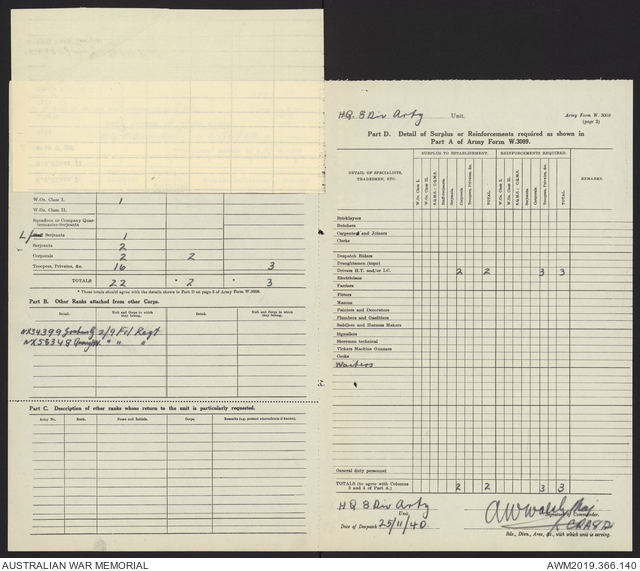 W.Os. Class I. 1
W.Os. Class II.
Squadron or Company Quartermaster-Serjeants
L/ Serjeants 1
Serjeants 2
Corporals 2 2
Troopers, Privates, &c. 16 3
TOTALS 22 * 2 * 3
* These totals should agree with the details shown in Part D on page 2 of Army Form W.3009.
Part B. Other Ranks attached from other Corps.
Detail. Unit and Corps to which they belong. Detail. Unit and Corps to which they belong.
NX34399 Graham G 2/9 Fd Regt
NX58348 " " "
Part C. Description of other ranks whose return to the unit is particularly requested.
Army No. Rank. Name and Initials. Corps. Remarks (e.g. present whereabouts if known).
HQ. 8 Div Arty Unit.
Army Form W. 3009
(page 2)
Part D. Detail of Surplus or Reinforcements required as shown in
Part A of Army Form W.3009.
SURPLUS TO ESTABLISHMENT. REINFORCEMENTS REQUIRED.
DETAIL OF SPECIALISTS, TRADESMEN, ETC.
W.Os. Class I. W.Os. Class II. S.Q.M.S., C.Q.M.S. Staff-Serjeants Serjeants Corporals Troopers, Privates, &c. TOTAL. W.Os. Class I. W.Os. Class II. S.Q.M.S., C.Q.M.S. Serjeants Corporals Troopers, Privates, &c. TOTAL. REMARKS.
Bricklayers
Butchers
Carpenters and Joiners
Clerks
Despatch Riders
Draughtsmen (topo)
Drivers H.T. and/or I.C. 2 2 3 3
Electricians
Farriers
Fitters
Masons
Painters and Decorators
Plumbers and Gasfitters
Saddlers and Harness Makers
Signallers
Storemen technical
Vickers Machine Gunners
Cooks
Waiters
General duty personnel
TOTALS (to agree with Columns 3 and 4 of Part A.) 2 2 3 3
HQ 8 Div Arty
Unit.
Date of Despatch 25/11/40
Signature of Commander.
Bde., Divn., Area, &c., with which unit is serving.
AUSTRALIAN WAR MEMORIAL
AWM2019.366.140